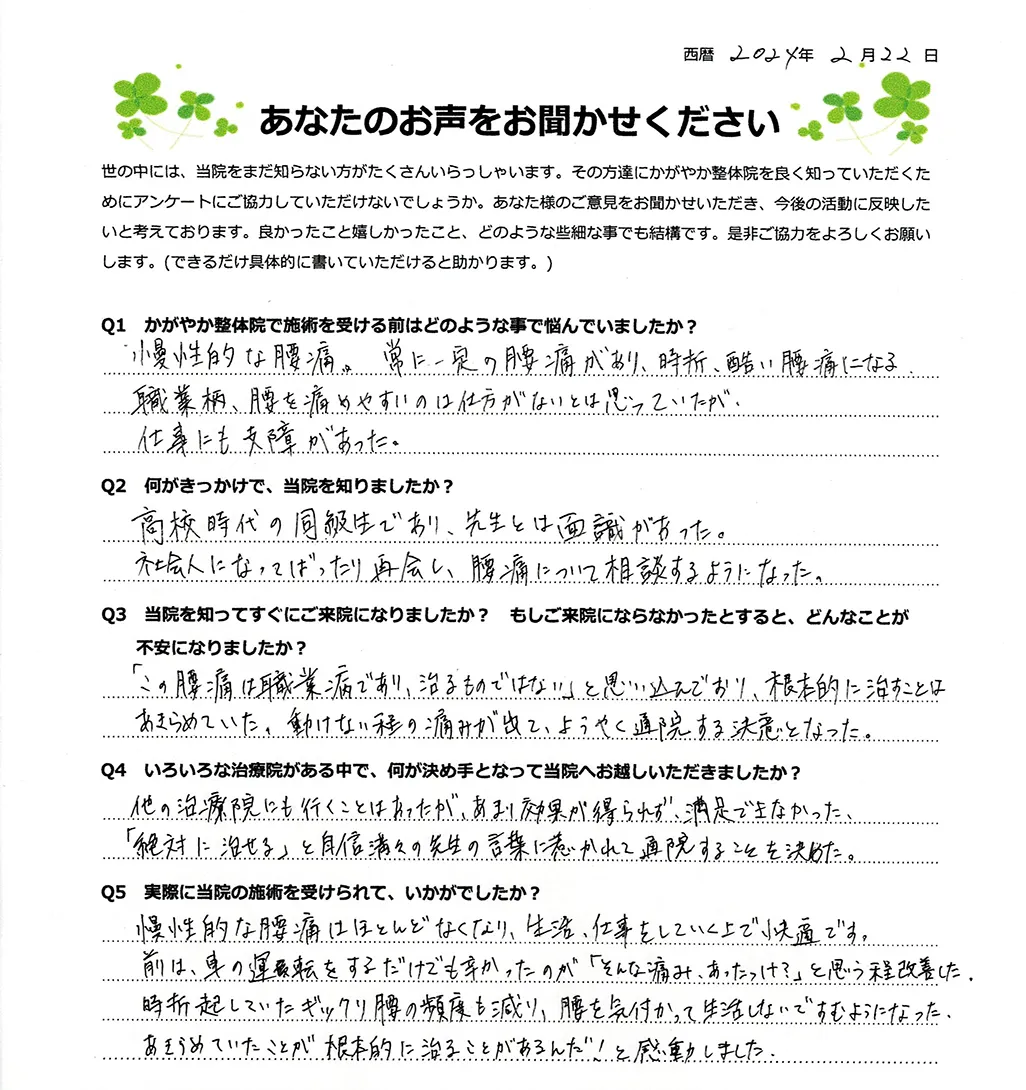 西暦 2024年 2月22日
あなたのお声をお聞かせください
世の中には、当院をまだ知らない方がたくさんいらっしゃいます。その方達にかがやか整体院を良く知っていただくた
めにアンケートにご協力していただけないでしょうか。あなた様のご意見をお聞かせいただき、今後の活動に反映した
いと考えております。良かったこと嬉しかったこと、どのような些細な事でも結構です。是非ご協力をよろしくお願い
します。(できるだけ具体的に書いていただけると助かります。)
Q1 かがやか整体院で施術を受ける前はどのような事で悩んでいましたか？
慢性的な腰痛。常に一定の腰痛があり、時折、酷い腰痛になる.
職業柄、腰を痛めやすいのは仕方がないとは思っていたが、
仕事にも支障があった。
Q2 何がきっかけで、当院を知りましたか？
高校時代の同級生であり、先生とは面識があった。
社会人になってばったり再会し、腰痛について相談するようになった。
Q3 当院を知ってすぐにご来院になりましたか？ もしご来院にならなかったとすると、どんなことが
不安になりましたか？
「この腰痛は職業病であり、治るものではない」と思い込んでおり、根本的に治すことは
あきらめていた。動けない程の痛みが出て、ようやく通院する決意となった。
Q4 いろいろな治療院がある中で、何が決め手となって当院へお越しいただきましたか？
他の治療院にも行くことはあったが、あまり効果が得られず、満足できなかった、
「絶対に治せる」と自信満々の先生の言葉に惹かれて通院することを決めた。
Q5 実際に当院の施術を受けられて、いかがでしたか？
慢性的な腰痛はほとんどなくなり、生活、仕事をしていく上で快適です。
前は、車の運転をするだけでも辛かったのが「そんな痛み、あったっけ？」と思う程改善した.
時折起していたギックリ腰の頻度も減り、腰を気付かって生活しないですむようになった.
あきらめていたことが根本的に治ることがあるんだ！と感動しました.